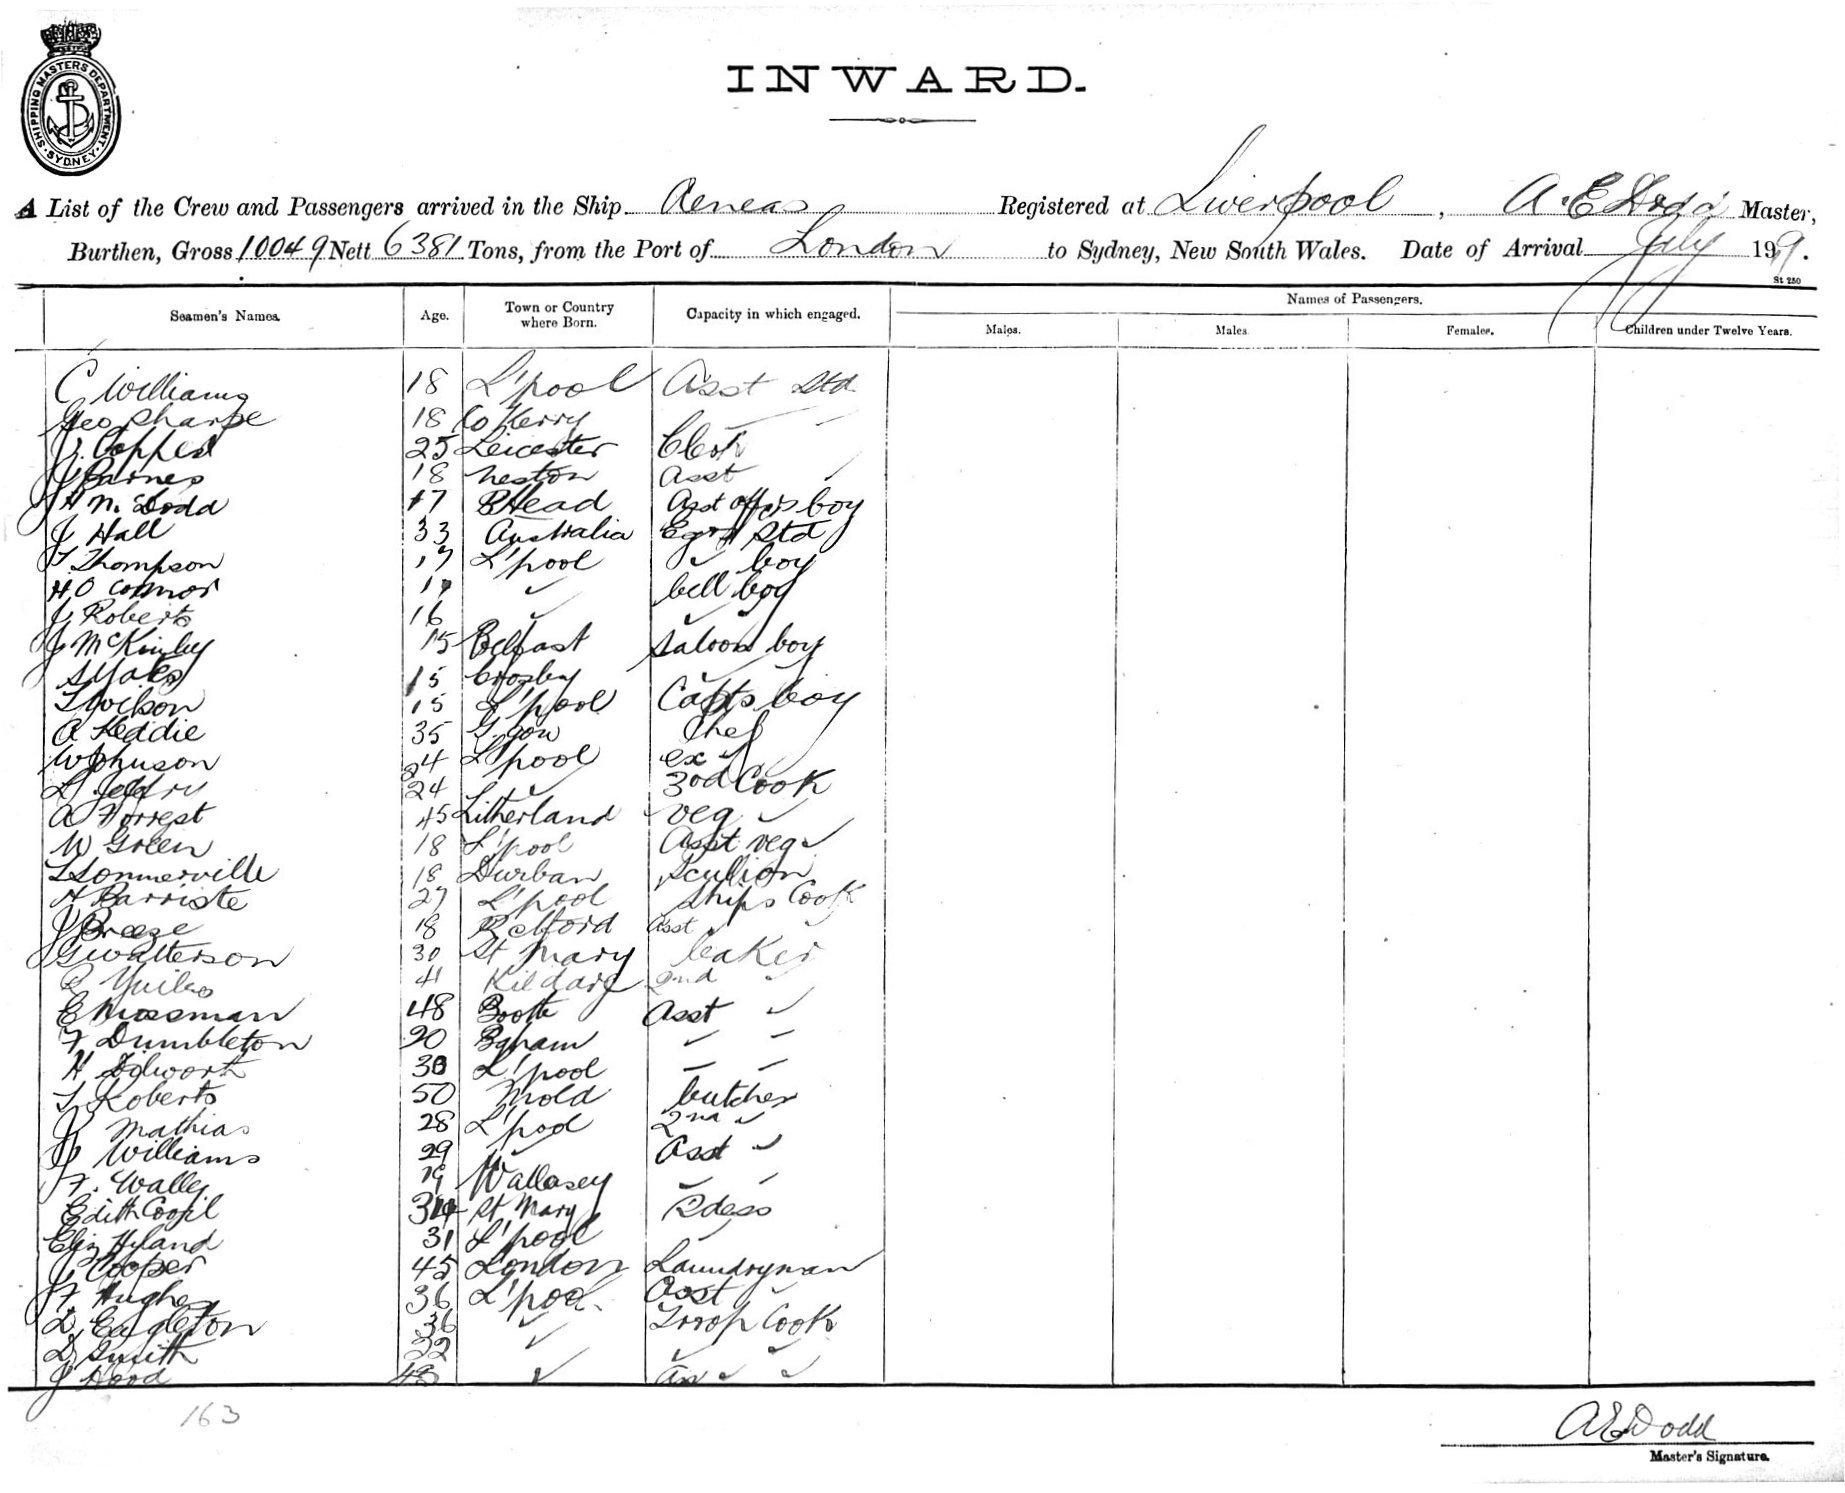 SHIPPING MASTERS DEPARTMENT
SYDNEY
INWARD.
A List of the Crew and Passengers arrived in the Ship Aeneas Registered at Liverpool, A. E Dodd Master,
Burthen, Gross 10049 Nett 6381 Tons, from the Port of London to Sydney, New South Wales. Date of Arrival July 199.
St 250
Seamen's Names. Age. Town or Country where Born. Capacity in which engaged. Names of Passengers.
Males. Males Females. Children under Twelve Years.
C Williams 18 L'pool Asst Std
Geo Sharpe 18 Co Kerry
25 Leicester Clerk
J Barnes 18 Neston Asst
H N. Dodd 17 B'Head Asst boy
J Hall 33 Australia Std
T Thompson 17 L'pool boy
H O Connor bell boy
J Roberts 16
J McKinley 15 Belfast Saloon boy
S Yates 15 Crosby
T Wilson 15 L'pool Capts boy
A Keddie 35 G.gow Chef
W Johnson 24 L'pool ex
24 3rd Cook
A Forrest 45 Litherland veg
W Green 18 L'pool Asst veg
T Sommerville 18 Durban Scullion
H Barriste 27 L'pool Ships Cook
J Breeze 18 Asst
G Watterson 30 St Mary baker
41 Kildare 2nd
E Mossman 48 Bootle Asst
F Dumbleton 20 B'ham
H Dilworth 30 L'pool
T Roberts 50 Mold butcher
J Mathias 28 L'pool 2nd
J Williams 29 Asst
F. Walley 19 Wallasey
Edith 34 St Mary Sdess
Eliz Hyland 31 L'pool
J Cooper 45 London Laundryman
F Hughes 36 L'pool Asst
L. Eagleton 36 Troop Cook
D Smith 32
J Hood 48
163
A E Dodd
Master's Signature.